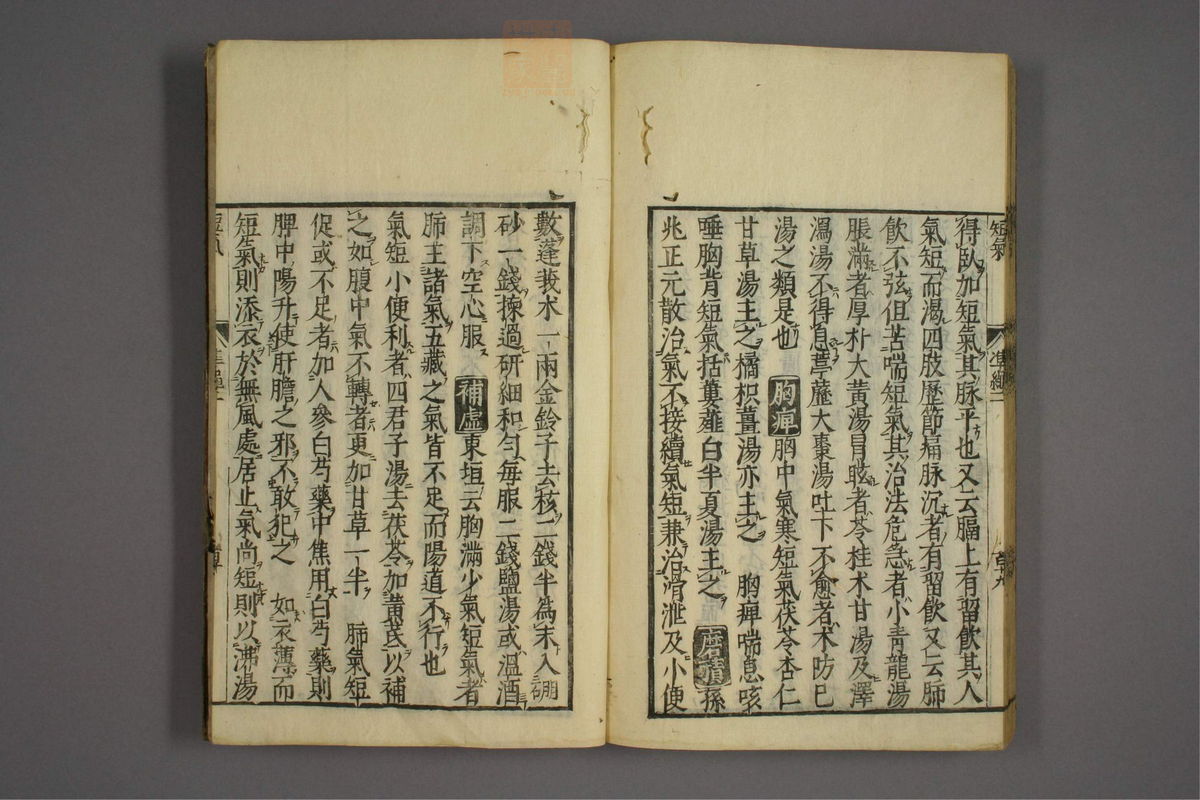 短氣
得臥加短氣其脉平也又云膈上有留飲其人
氣短而渴四肢歷節痛脉沉者有留飲又云肺
飲不弦但苦喘短氣其治法危急者小青龍湯
脹滿者厚朴大黃湯冒眩者苓桂术甘湯及澤
瀉湯不得息葶藶大棗湯吐下不愈者木防已
湯之類是也 胸痺胸中氣寒短氣茯苓杏仁
甘草湯主之橘枳薑湯亦主之 胸痺喘息咳
唾胸背短氣括蔞薤白半夏湯主之 磨積孫
兆正元散治氣不接續氣短兼治滑泄及小便
數蓬莪术一兩金鈴子去核二錢半為末入硼
砂一錢揀過研細和勻每服二錢鹽湯或溫酒
調下空心服 補虛東垣云胸滿少氣短氣者
肺主諸氣五藏之氣皆不足而陽道不行也
氣短小便利者四君子湯去茯苓加黃芪以補
之如腹中氣不轉者更加甘草一半 肺氣短
促或不足者加人參白芍藥中焦用白芍藥則
脾中陽升使肝膽之邪不敢犯之 如衣薄而
短氣則添衣於無風處居止氣尚短則以沸湯